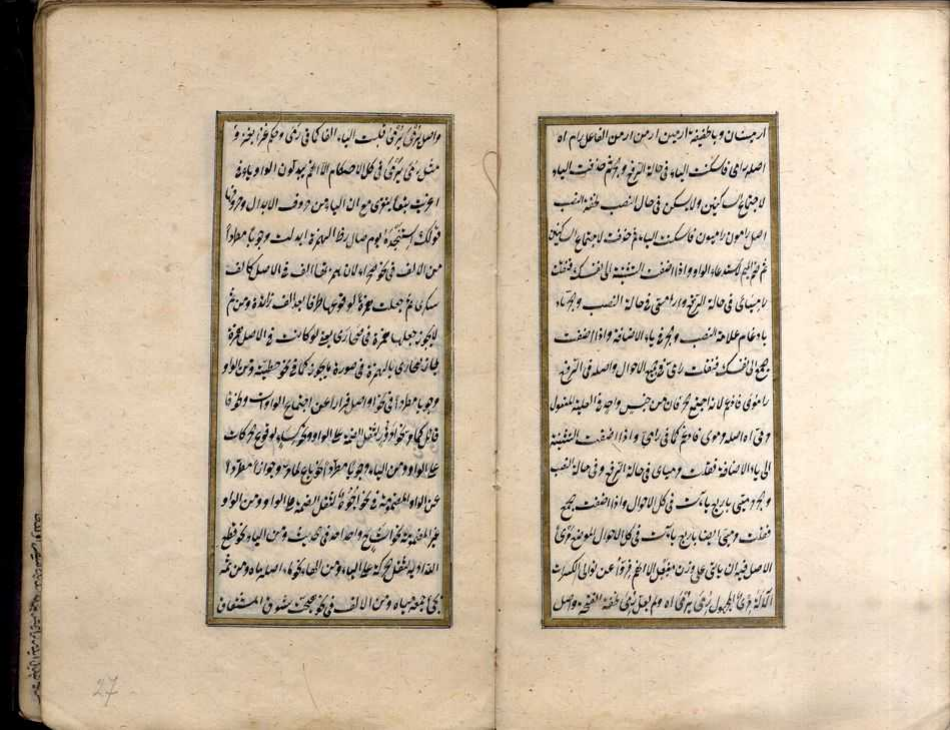 ارمينان وبالخفيفة ارمين ارمن ارمن الفاعل رام اه
اصله رامى فاسكنت الياء فى حالة الرفع والجر ثم حذفت الياء
لاجتماع الساكنين ولا يسكن فى حال النصب لخفة النصب
اصل رامون راميون فاسكنت الياء ثم حذفت لاجتماع الساكنين
ثم ضم الميم لاستدعاء الواو واذا اضفت التثنية الى نفسك فقلت
رامياى فى حالة الرفع وراميى فى حالة النصب والجر
بادغام علامة النصب والجر فى ياء الاضافة واذا اضفت
جمع الى نفسك فقلت رامى فى جميع الاحوال واصله فى الرفع
راموى فادغم لانه اجتمع حرفان من جنس واحد فى العلية المفعول
مرمى اه اصله مرموى فادغم كما فى رامى واذا اضفت التثنية
الى ياء الاضافة فقلت مرمياى فى حالة الرفع وفى حالة النصب
والجر مرميى باربع ياءات فى كل الاحوال واذا اضفت الجمع
فقلت مرميى ايضا باربع ياءات فى كل الاحوال الموضع مرمى
الاصل فيه ان ياتى على وزن مفعل الا انهم فروا عن توالى الكسرات
الآلة مرمى المجهول رمى يرمى اه ولم يعل رمى لخفة الفتحة واصل
يرمى يرمى قلبت الياء الفا كما فى رمى وحكم غزا يغزو
مثل رمى يرمى فى كل الاحكام الا انهم يبدلون الواو ياء فى
اغزيت تبعا يغزى مع ان الياء من حروف الابدال وحروفها
قولك استنجده يوم صال زط الهمزة ابدلت وجوبا مطردا
من الالف فى نحو صحراء لان همزتها الف فى الاصل كالف
سكرى ثم جعلت همزة لوقوعها طرفا بعد الف زائدة ومن ثم
لا يجوز جعلها همزة فى صحارى يعنى لو كانت فى الاصل همزة
لجاز صحارى بالهمزة فى صورة ما يجوز كما فى نحو خطيئة ومن الواو
وجوبا مطردا فى نحو اواصل فرارا عن اجتماع الواوات ونحو قا
قائل كما ونحو ادؤر لثقل الضمة على الواو ونحو كساء لوقوع حركات
على الواو ومن الياء وجوبا مطردا نحو بائع لما مر وجوازا مطردا
عن الواو المضمومة فى نحو اجوه لثقل الضمة على الواو ومن الواو
غير المضمومة نحو اشاح واحد احد فى الحديث ومن الياء نحو قطع
الله اديه لثقل الحركة على الياء ومن الهاء نحو ماء اصله ماه ومن ثمه
يجئ جمعه مياه ومن الالف فى نحو هيجت شوق المشتئق
27